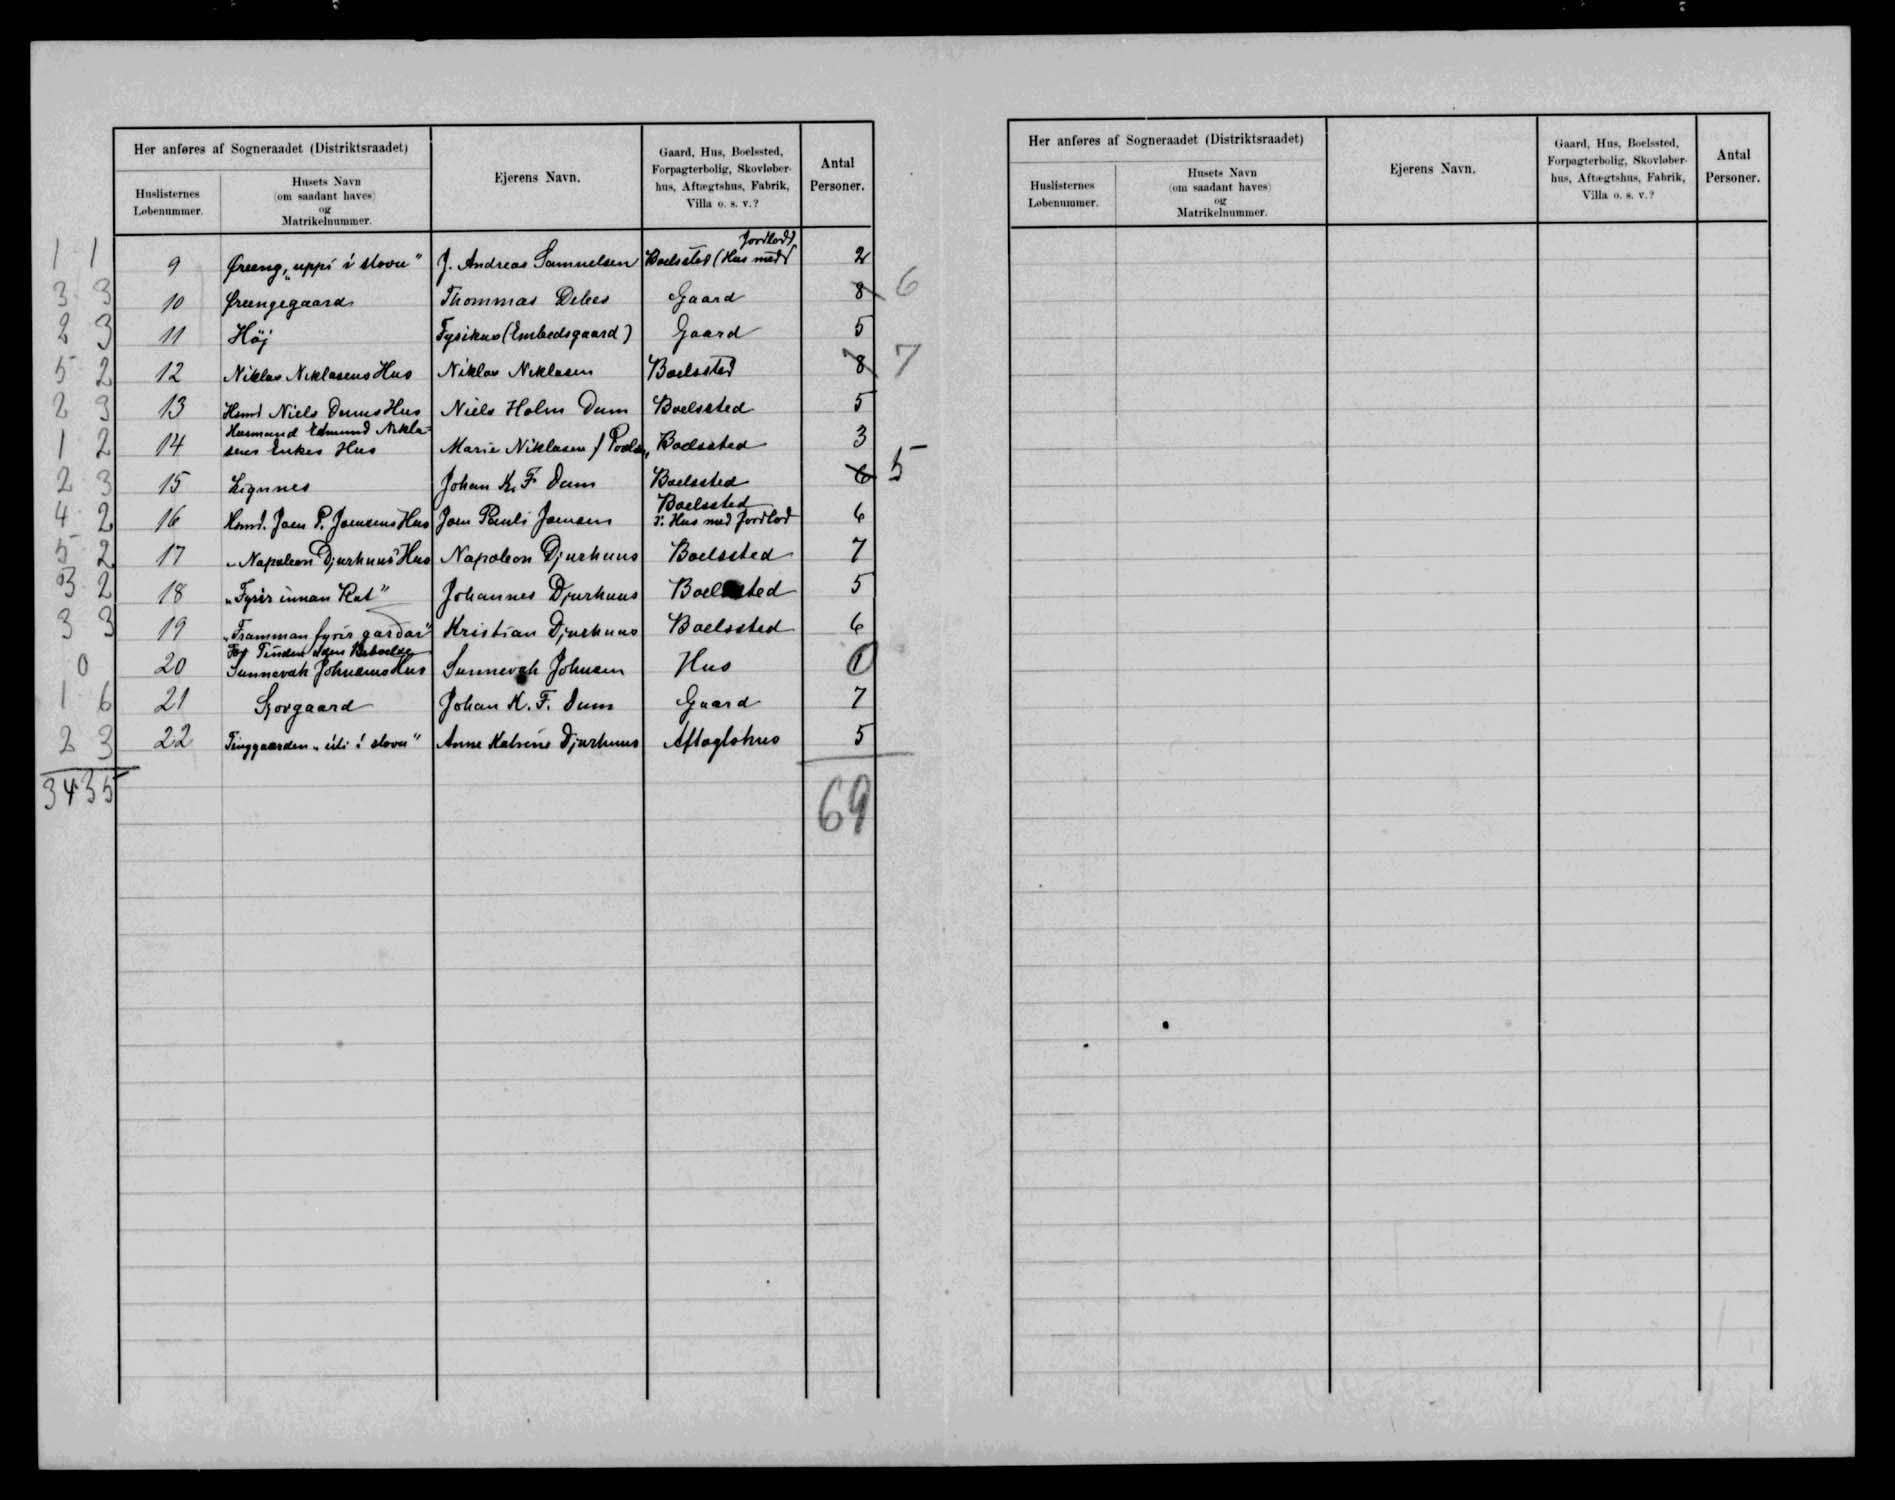 Her anføres af Sogneraadet (Distriktsraadet)
Huslisternes Løbenummer.
Husets Navn (om saadant haves) og Matrikelnummer.
Ejerens Navn.
Gaard, Hus, Boelssted, Forpagterbolig, Skovløberhus, Aftægtshus, Fabrik, Villa o. s. v.?
Antal Personer.
1 1 9 Øreeng, "uppi í stovu" J. Andreas Samuelsen Boelssted (Hus med Jordlod) 2
3 3 10 Øreengegaard Thommas Debes Gaard 8 6
2 3 11 Höj Fysikus (Embedsgaard) Gaard 5
5 2 12 Niklas Niklasens Hus Niklas Niklasen Boelssted 8 7
2 3 13 Hsmd Niels Dams Hus Niels Holm Dam Boelssted 5
1 2 14 Husmand Edmund Niklasens Enkes Hus Marie Niklasen f. Boelssted 3
2 3 15 Lignnes Johan K. F. Dam Boelssted 6 5
4 2 16 Hsmd. Joen P. Joensens Hus Joen Pauli Joensen Boelssted ɔ: Hus med Jordlod 6
5 2 17 "Napoleon Djurhuus" Hus Napoleon Djurhuus Boelssted 7
3 2 18 "Fyrir innan Kat" Johannes Djurhuus Boelssted 5
3 3 19 "Framman fyrir garðar" Kristian Djurhuus Boelssted 6
0 20 Sunnevah Johnsens Hus Sunnevah Johnsen Hus 0
1 6 21 Sjovgaard Johan K. F. Dam Gaard 7
2 3 22 Tinggaarden "úti í stovu" Anne Katrine Djurhuus Aftægtshus 5
34 35 69
Her anføres af Sogneraadet (Distriktsraadet)
Huslisternes Løbenummer.
Husets Navn (om saadant haves) og Matrikelnummer.
Ejerens Navn.
Gaard, Hus, Boelssted, Forpagterbolig, Skovløberhus, Aftægtshus, Fabrik, Villa o. s. v.?
Antal Personer.